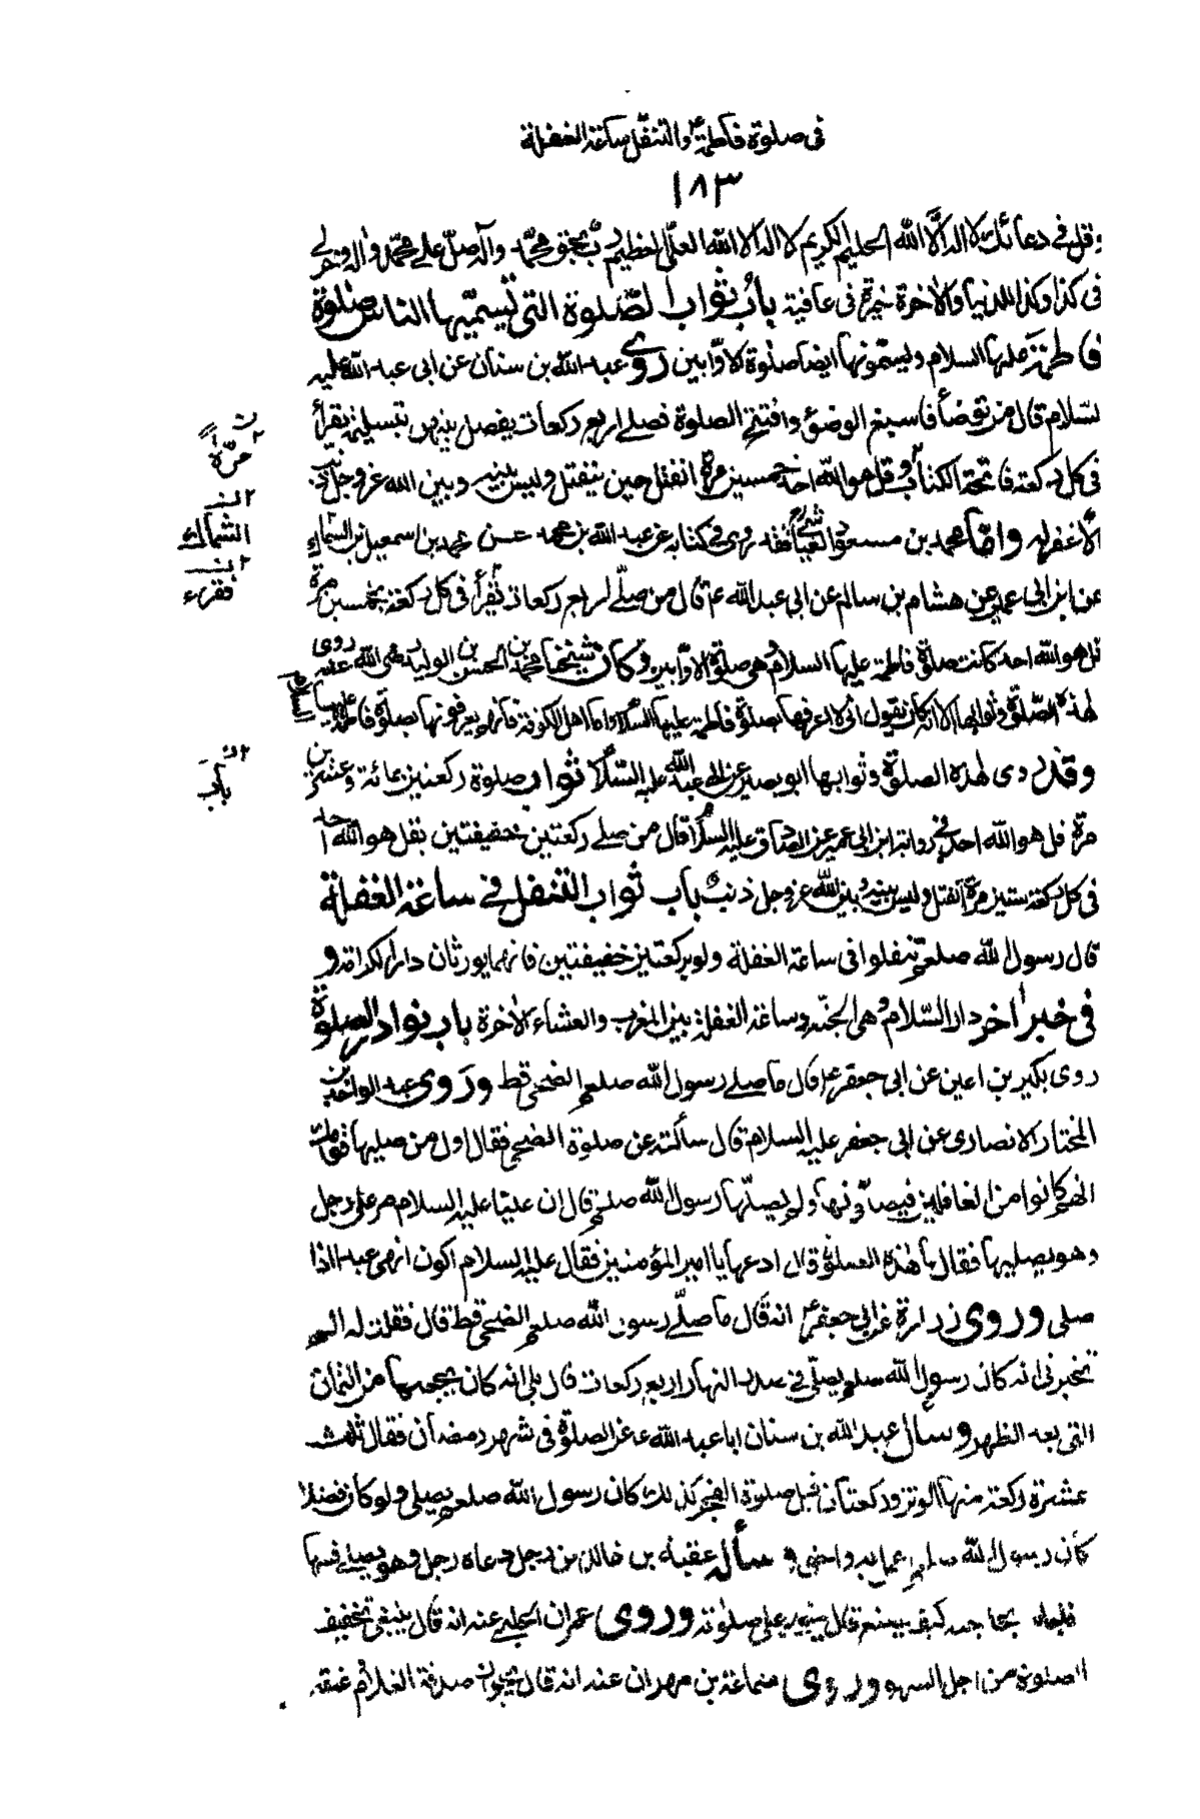 في صلوة فاطمة ع والتنفل ساعة الغفلة
١٨٣
وقل في دعائك لا اله الا الله الحليم الكريم لا اله الا الله العلي العظيم بحق محمد وآله صل على محمد وآله
في كذا وكذا للدنيا والاخرة خيرة في عافية باب ثواب الصلوة التي تسميها الناس صلوة
فاطمة عليها السلام ويسمونها ايضا صلوة الاوابين روى عبد الله بن سنان عن ابي عبد الله عليه
السلام قال من توضأ فاسبغ الوضوء وافتتح الصلوة فصلى اربع ركعات يفصل بينهن بتسليمة يقرأ
في كل ركعة فاتحة الكتاب وقل هو الله احد خمسين مرة انفتل حين ينفتل وليس بينه وبين الله عز وجل ذنب
الا غفر له واما محمد بن مسعود العياشي فقد روى في كتابه عن عبد الله بن محمد عن محمد بن اسمعيل بن السماك
عن ابن ابي عمير عن هشام بن سالم عن ابي عبد الله ع قال من صلى اربع ركعات يقرأ في كل ركعة بخمسين مرة
قل هو الله احد كانت صلوة فاطمة عليها السلام وهي صلوة الاوابين وكان شيخنا محمد بن الحسن بن الوليد رضى الله عنه روى
هذه الصلوة وثوابها الا انه كان يقول اني لا اعرفها بصلوة فاطمة عليها السلام واما اهل الكوفة فانهم يعرفونها بصلوة فاطمة عليها
وقد روى هذه الصلوة وثوابها ابو بصير عن ابي عبد الله عليه السلام ثواب صلوة ركعتين بمائة وعشرين
مرة قل هو الله احد في رواية ابن ابي عمير عن الصادق عليه السلام قال من صلى ركعتين خفيفتين بقل هو الله احد
في كل ركعة ستين مرة انفتل وليس بينه وبين الله عز وجل ذنب باب ثواب التنفل في ساعة الغفلة
قال رسول الله صلعم تنفلوا في ساعة الغفلة ولو بركعتين خفيفتين فانهما يورثان دار الكرامة و
في خبر اخر دار السلام وهي الجنة وساعة الغفلة بين المغرب والعشاء الاخرة باب نوادر الصلوة
روى بكير بن اعين عن ابي جعفر ع قال ما صلى رسول الله صلعم الضحى قط وروى عبد الواحد بن
المختار الانصاري عن ابي جعفر عليه السلام قال سألته عن صلوة الضحى فقال اول من صليها قومك
انهم كانوا من الغافلين فيصلونها ولم يصلها رسول الله صلعم قال ان عليا عليه السلام مر على رجل
وهو يصليها فقال ما هذه الصلوة قال ادعها يا امير المؤمنين فقال عليه السلام اكون انهى عبدا اذا
صلى وروى زرارة عن ابي جعفر ع انه قال ما صلى رسول الله صلعم الضحى قط قال فقلت له الم
تخبرني انه كان رسول الله صلعم يصلي في صدر النهار اربع ركعات قال بلى انه كان يجعلها من الثمان
التي بعد الظهر وسأل عبد الله بن سنان ابا عبد الله ع عن الصلوة في شهر رمضان فقال ثلث
عشرة ركعة منها الوتر وركعتان قبل صلوة الفجر كذلك كان رسول الله صلعم يصلي ولو كان فضلا
كان رسول الله صلعم اعمل به واحق و سأل عقبة بن خالد عن رجل دعاه رجل وهو يصلي فسها
فاجابه بحاجته كيف يصنع قال يمضي على صلوته وروى عمران الحلبي عنه انه قال ينبغي تخفيف
الصلوة من اجل السهو وروى سماعة بن مهران عنه انه قال يجوز صدقة الغلام وعتقه
مرة
الشمال
فقرء
باب